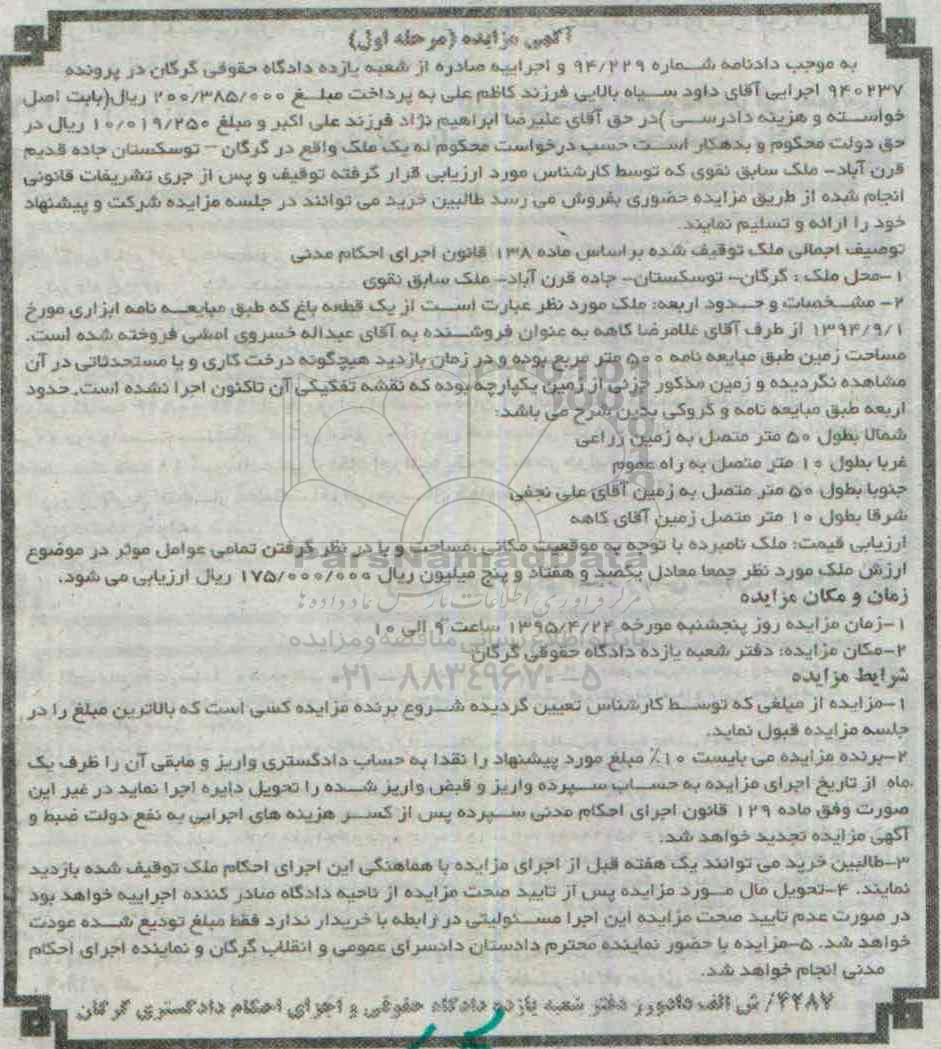 آگهی مزایده (مرحله اول)
به موجب دادنامه شماره ۹۴/۲۲۹ و اجراییه صادره از شعبه یازده دادگاه حقوقی گرگان در پرونده
۹۴۰۲۳۷ اجرایی آقای داود سیاه بالایی فرزند کاظم علی به پرداخت مبلغ ۲۰۰/۳۸۵/۰۰۰ ریال(بابت اصل
خواسته و هزینه دادرسی )در حق آقای علیرضا ابراهیم نژاد فرزند علی اکبر و مبلغ ۱۰/۰۱۹/۲۵۰ ریال در
حق دولت محکوم و بدهکار است حسب درخواست محکوم له یک ملک واقع در گرگان – توسکستان جاده قدیم
قرن آباد- ملک سابق نقوی که توسط کارشناس مورد ارزیابی قرار گرفته توقیف و پس از جری تشریفات قانونی
انجام شده از طریق مزایده حضوری بفروش می رسد طالبین خرید می توانند در جلسه مزایده شرکت و پیشنهاد
خود را ارائه و تسلیم نمایند.
توصیف اجمالی ملک توقیف شده براساس ماده ۱۳۸ قانون اجرای احکام مدنی
۱-محل ملک : گرگان- توسکستان- جاده قرن آباد- ملک سابق نقوی
۲- مشخصات و حدود اربعه: ملک مورد نظر عبارت است از یک قطعه باغ که طبق مبایعه نامه ابزاری مورخ
۱۳۹۴/۹/۱ از طرف آقای غلامرضا کاهه به عنوان فروشنده به آقای عبداله خسروی امشی فروخته شده است.
مساحت زمین طبق مبایعه نامه ۵۰۰ متر مربع بوده و در زمان بازدید هیچگونه درخت کاری و یا مستحدثاتی در آن
مشاهده نگردیده و زمین مذکور جزئی از زمین یکپارچه بوده که نقشه تفکیکی آن تاکنون اجرا نشده است. حدود
اربعه طبق مبایعه نامه و کروکی بدین شرح می باشد:
شمالا بطول ۵۰ متر متصل به زمین زراعی
غربا بطول ۱۰ متر متصل به راه عموم
جنوبا بطول ۵۰ متر متصل به زمین آقای علی نجفی
شرقا بطول ۱۰ متر متصل زمین آقای کاهه
ارزیابی قیمت: ملک نامبرده با توجه به موقعیت مکانی ،مساحت و با در نظر گرفتن تمامی عوامل موثر در موضوع
ParsNamadData
ارزش ملک مورد نظر جمعا معادل یکصد و هفتاد و پنج میلیون ریال ۱۷۵/۰۰۰/۰۰۰ ریال ارزیابی می شود.
مرکز فرآوری اطلاعات پارس نماد داده ها
زمان و مکان مزایده
۱-زمان مزایده روز پنجشنبه مورخه ۱۳۹۵/۴/۲۴ ساعت ۹ الی ۱۰
پایگاه اطلاع رسانی مناقصه و مزایده
۲-مکان مزایده: دفتر شعبه یازده دادگاه حقوقی گرگان
۰۲۱-۸۸۳۴۹۶۷۰-۵
شرایط مزایده
۱-مزایده از مبلغی که توسط کارشناس تعیین گردیده شروع برنده مزایده کسی است که بالاترین مبلغ را در
جلسه مزایده قبول نماید.
۲-برنده مزایده می بایست ۱۰٪ مبلغ مورد پیشنهاد را نقدا به حساب دادگستری واریز و مابقی آن را ظرف یک
ماه از تاریخ اجرای مزایده به حساب سپرده واریز و قبض واریز شده را تحویل دایره اجرا نماید در غیر این
صورت وفق ماده ۱۲۹ قانون اجرای احکام مدنی سپرده پس از کسر هزینه های اجرایی به نفع دولت ضبط و
آگهی مزایده تجدید خواهد شد.
۳-طالبین خرید می توانند یک هفته قبل از اجرای مزایده با هماهنگی این اجرای احکام ملک توقیف شده بازدید
نمایند. ۴-تحویل مال مورد مزایده پس از تایید صحت مزایده از ناحیه دادگاه صادر کننده اجراییه خواهد بود
در صورت عدم تایید صحت مزایده این اجرا مسئولیتی در رابطه با خریدار ندارد فقط مبلغ تودیع شده عودت
خواهد شد. ۵-مزایده با حضور نماینده محترم دادستان دادسرای عمومی و انقلاب گرگان و نماینده اجرای احکام
مدنی انجام خواهد شد.
۴۲۸۷/ ش الف دادورز دفتر شعبه یازده دادگاه حقوقی و اجرای احکام دادگستری گرگان